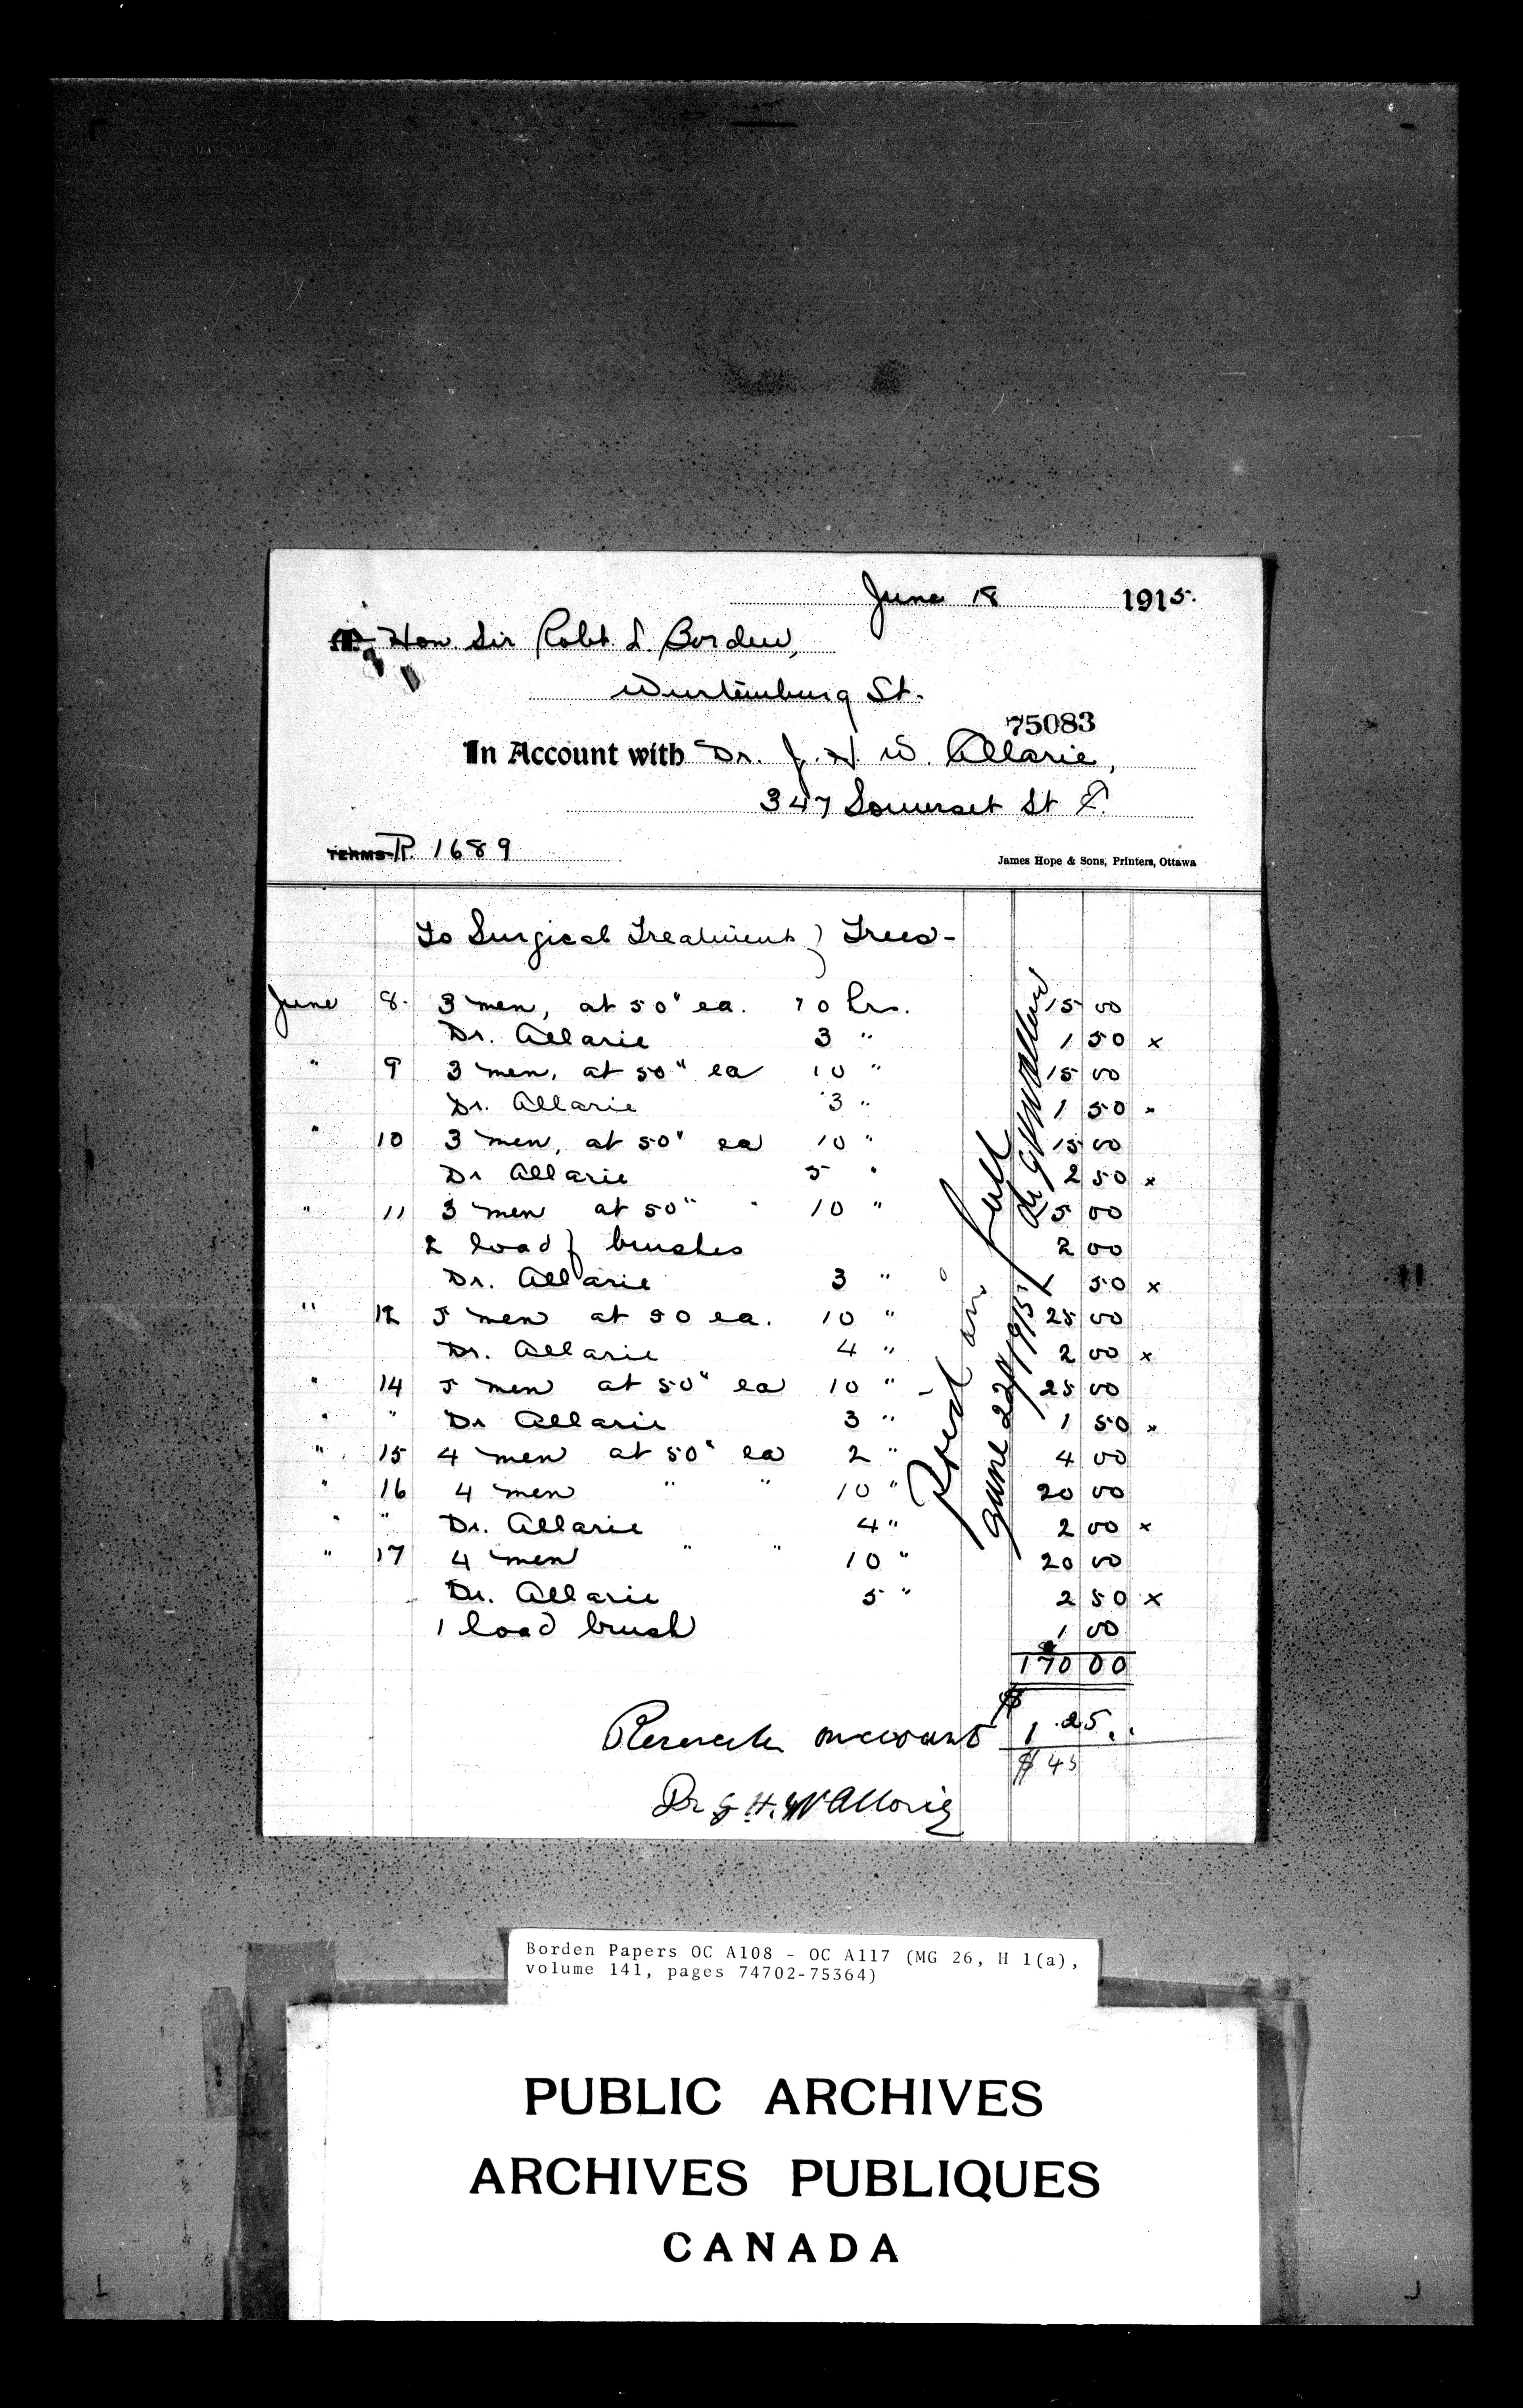 June 18 1915.
Hon. Sir Robt. L. Borden,
Wurtemburg St.
75083
In Account with Dr. J. H. W. Allarie,
347 Somerset St E.
TERMS R. 1689
James Hope & Sons, Printers, Ottawa
To Surgical Treatment of Trees-
June 8. 3 men, at 50" ea. 10 hrs. 15 00
Dr. Allarie 3 " 1 50 x
" 9 3 men, at 50" ea 10 " 15 00
Dr. Allarie 3 " 1 50 "
" 10 3 men, at 50" ea 10 " 15 00
Dr Allarie 5 " 2 50 x
" 11 3 men at 50" " 10 " 15 00
2 load of brushes 2 00
Dr. Allarie 3 " 1 50 x
" 12 5 men at 50 ea. 10 " 25 00
Dr. Allarie 4 " 2 00 x
" 14 5 men at 50" ea 10 " 25 00
" " Dr Allarie 3 " 1 50 x
" 15 4 men at 50" ea 2 " 4 00
" 16 4 men " " 10 " 20 00
" " Dr. Allarie 4 " 2 00 x
" 17 4 men " " 10 " 20 00
Dr. Allarie 5 " 2 50 x
1 load brush 1 00
170 00
Paid in full
June 22nd 1915
Dr J H W Allarie
account $ 1 25
$ 45
Dr J. H. W Allarie
Borden Papers OC A108 - OC A117 (MG 26, H 1(a),
volume 141, pages 74702-75364)
PUBLIC ARCHIVES
ARCHIVES PUBLIQUES
CANADA